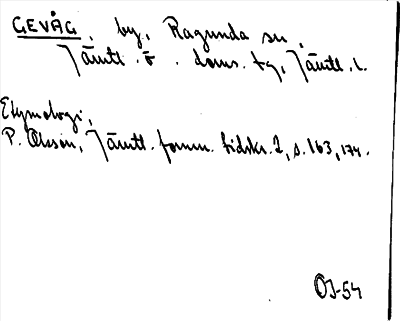 GEVÅG, by, Ragunda sn,
Jämtl. ö. doms. tg, Jämtl. l.
Etymologi,
P. Olsson, Jämtl. fornm. tidskr. 2, s. 163, 174.
OJ-54